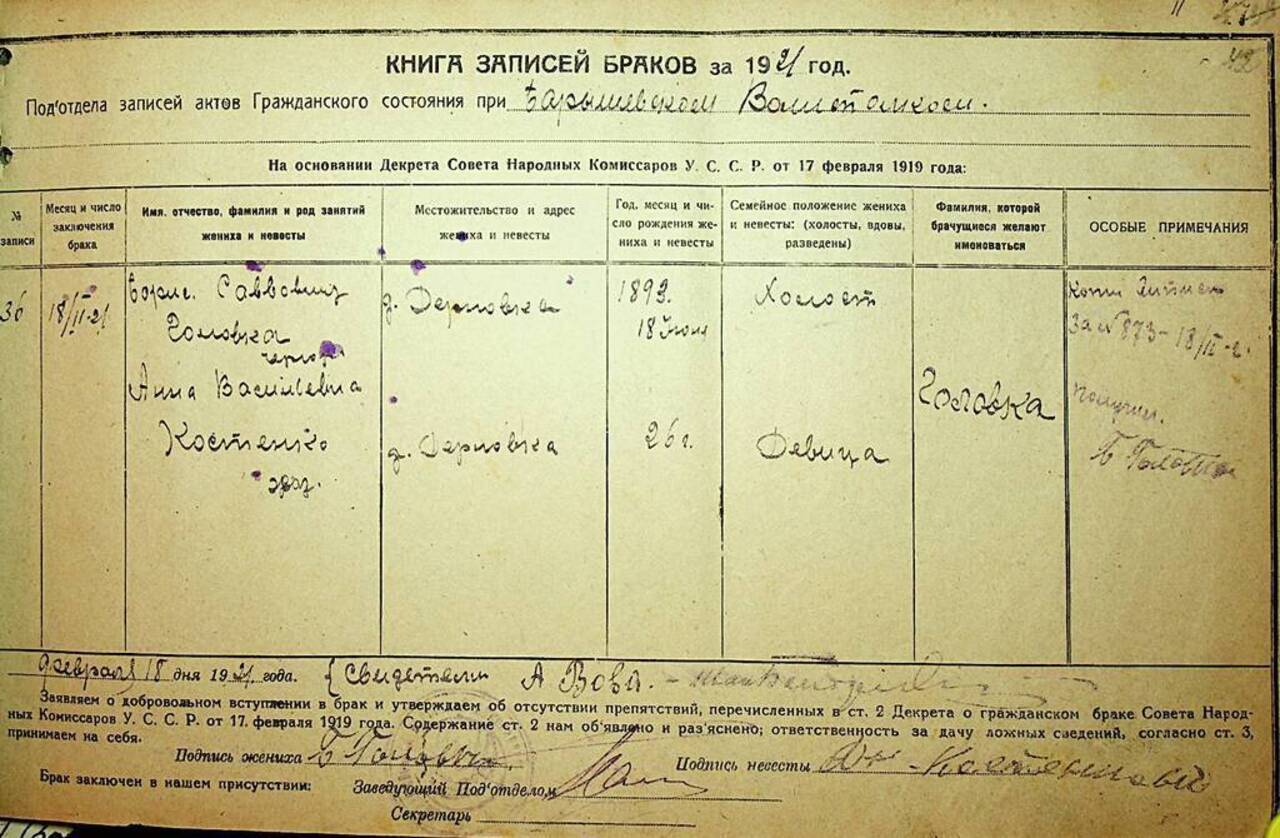 42
КНИГА ЗАПИСЕЙ БРАКОВ за 1921 год.
Под'отдела записей актов Гражданского состояния при Барышевском
На основании Декрета Совета Народных Комиссаров У. С. С. Р. от 17 февраля 1919 года:
№ записи
Месяц и число заключения брака
Имя, отчество, фамилия и род занятий жениха и невесты
Местожительство и адрес жениха и невесты
Год, месяц и число рождения жениха и невесты
Семейное положение жениха и невесты: (холосты, вдовы, разведены)
Фамилия, которой брачущиеся желают именоваться
ОСОБЫЕ ПРИМЕЧАНИЯ
36
18/II-21
Саввович
Головка
д. Дерновка
1893.
18 Июня
Холост
За № 873 - 18/II-21
Анна Васильевна
Костенко
д. Дерновка
26 г.
Девица
Головка
Б Головка
февраля 18 дня 1921 года. Свидетели А Вова.
Заявляем о добровольном вступлении в брак и утверждаем об отсутствии препятствий, перечисленных в ст. 2 Декрета о гражданском браке Совета Народ-
ных Комиссаров У. С. С. Р. от 17 февраля 1919 года. Содержание ст. 2 нам об'явлено и раз'яснено; ответственность за дачу ложных сведений, согласно ст. 3,
принимаем на себя.
Подпись жениха Б Головка Подпись невесты
Брак заключен в нашем присутствии: Заведующий Под'отделом
Секретарь